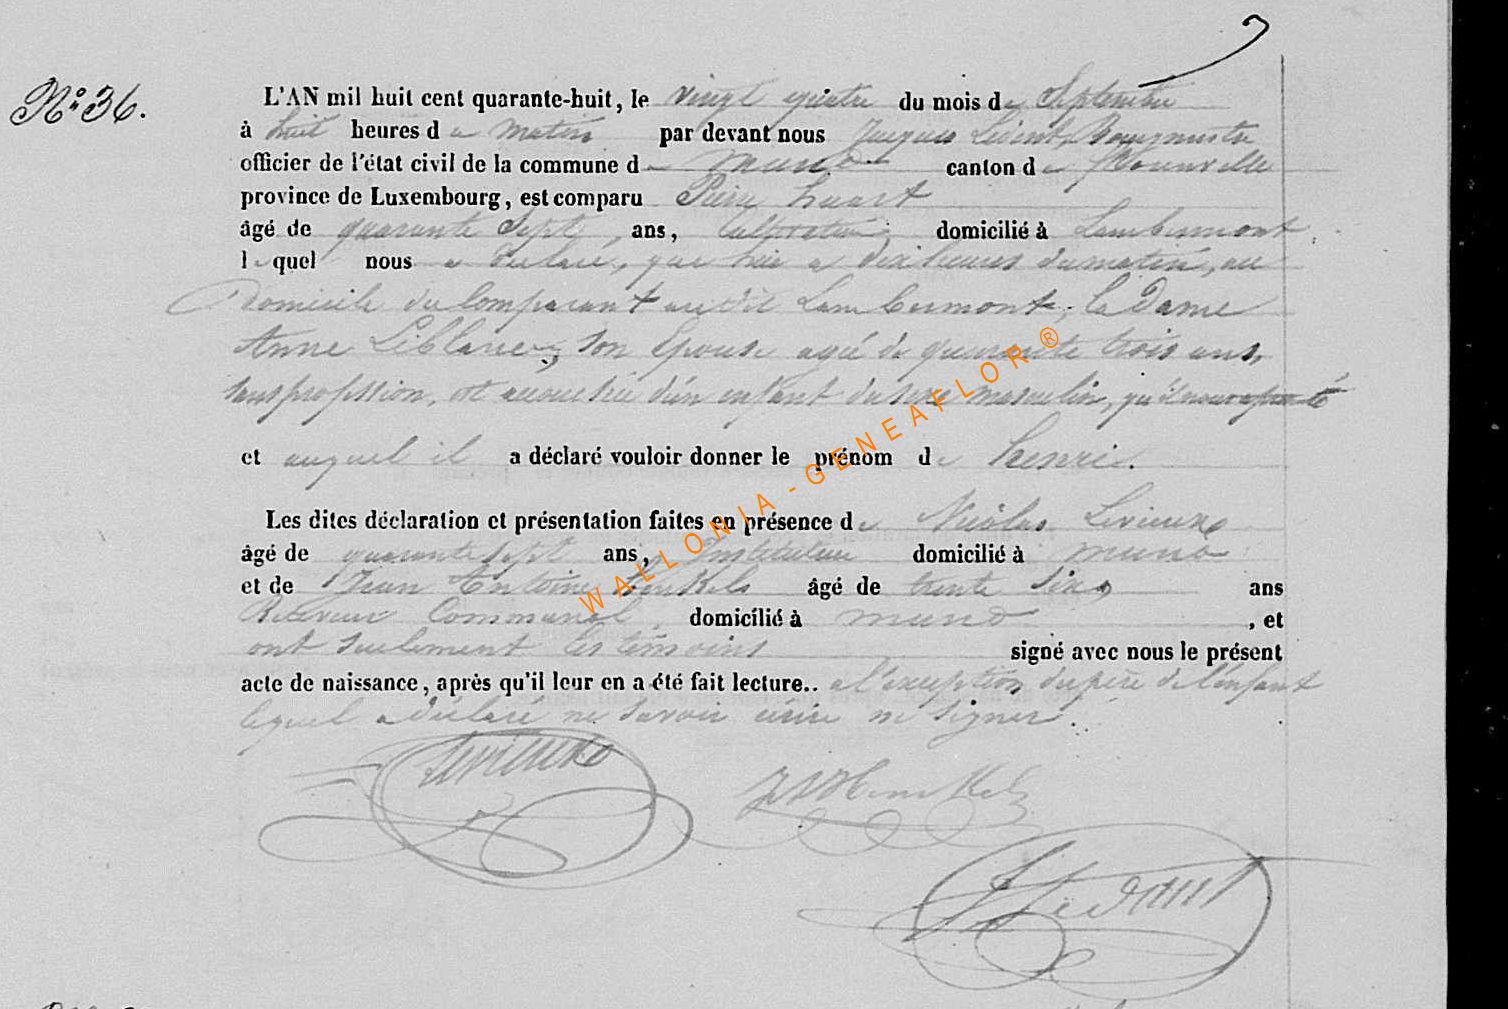 N° 36.
L'AN mil huit cent quarante-huit, le vingt quatre du mois de Septembre
à huit heures du matin par devant nous Jacques Lédent, Bourgmestre
officier de l'état civil de la commune de muno canton de florenville
province de Luxembourg, est comparu Pierre huart
âgé de quarante Sept ans, Cultivateur domicilié à Lambermont
lequel nous a déclaré, que hier a dix heures du matin, au
Domicile du Comparant au dit Lambermont, la Dame
Anne Leblanc, son Epouse agée de quarante trois ans,
sans profession, est accouchée d'un enfant du sexe masculin, qu'il nous a présenté
et auquel il a déclaré vouloir donner le prénom de henri.
Les dites déclaration et présentation faites en présence de Nicolas Lerieux
âgé de quarante sept ans, Instituteur domicilié à muno
et de Jean Antoine henkels âgé de trente six ans
Receveur Communal, domicilié à muno, et
ont seulement les témoins signé avec nous le présent
acte de naissance, après qu'il leur en a été fait lecture.. a l'exception du père de l'enfant
lequel a déclaré ne savoir écrire ni signer.
WALLONIA-GENEAFLOR ®